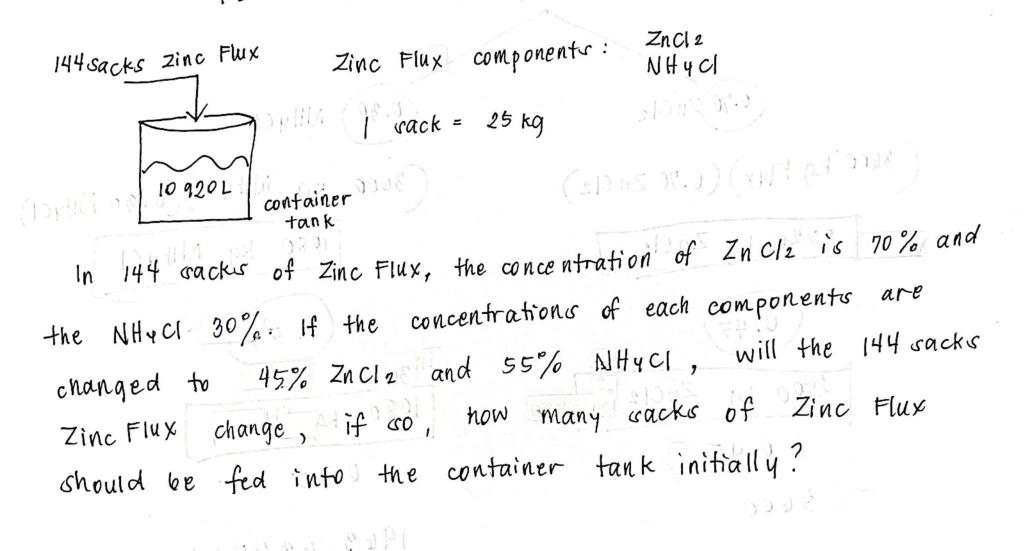 144 sacks Zinc Flux
Zinc Flux components:
ZnCl2
NH4Cl
1 sack = 25 kg
10 920L
container
tank
In 144 sacks of Zinc Flux, the concentration of ZnCl2 is 70% and
the NH4Cl 30%. If the concentrations of each components are
changed to 45% ZnCl2 and 55% NH4Cl, will the 144 sacks
Zinc Flux change, if so, how many sacks of Zinc Flux
should be fed into the container tank initially?